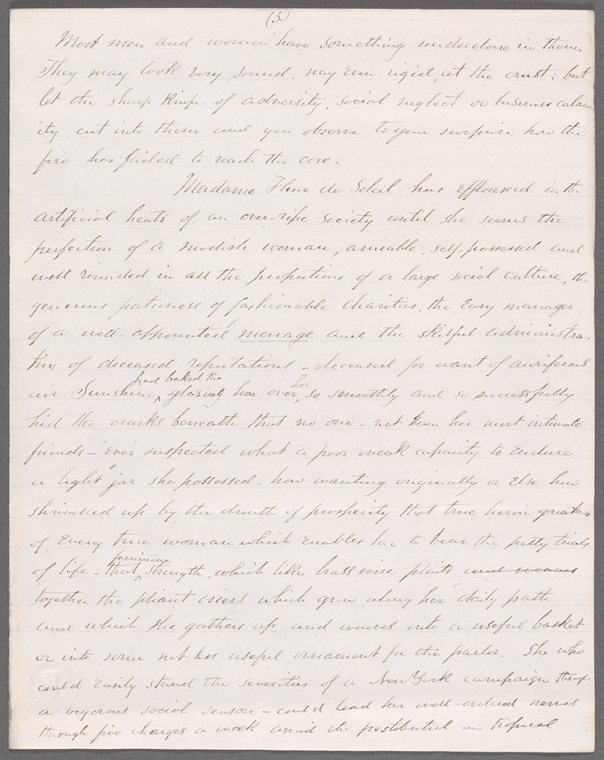 (3.)
Most men and women have something underdone in them.
They may look very sound, nay even rigid, at the crust; but
let the sharp knife of adversity, social neglect or business calam
ity cut into them and you observe to your surprise how the
fire has failed to reach the core.
Madame Fleur de Soleil has effloresced in the
artificial heats of an over-ripe society until she seems the
perfection of a modish woman, amiable, self-possessed and
well rounded in all the proportions of a large social culture, the
generous patroness of fashionable charities, the easy manager
of a well-appointed menage and the skilful administra-
trix of deceased reputations - deceased for want of auriferous
air. Sunshine had baked the glazing over her so smoothly and so successfully
hid the cracks beneath that no one - not even her most intimate
friends - ever suspected what a poor weak capacity to endure
a light jar she possessed - how wanting originally or else how
shrunked up by the drouth of prosperity that true heroic greatness
of every true woman which enables her to bear the petty trials
of life - that feminine strength, which like brass wire plaits and weaves
together the pliant osiers which grow along her daily path
and which she gathers up and weaves into a useful basket
or into some not less useful ornament for the parlor. She who
could easily stand the severities of a New York campaign through
a vigorous social season - could lead her well-ordered nerves
through five charges a week amid the in tropical